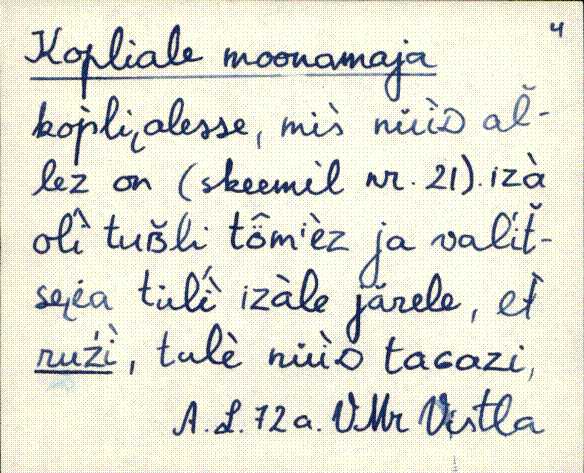 4
Kopliale moonamaja
kòpli̮alesse, mis̀ nüìᴅ al̆-
lez on (skeemìl nr. 21). izà
olì tuʙli tȫmìez ja valìt̆-
seja tulì izàle järele, et̀
ruźì, tulè nüìᴅ taGazi,
A. L. 72 a. VMr Vistla